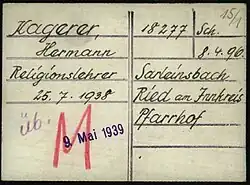 15/1
Kagerer, 18277 Sch.
Hermann 8.4.96.
Religionslehrer Sarleinsbach
25.7.1938 Ried am Innkreis
üb. M Pfarrhof
9. Mai 1939